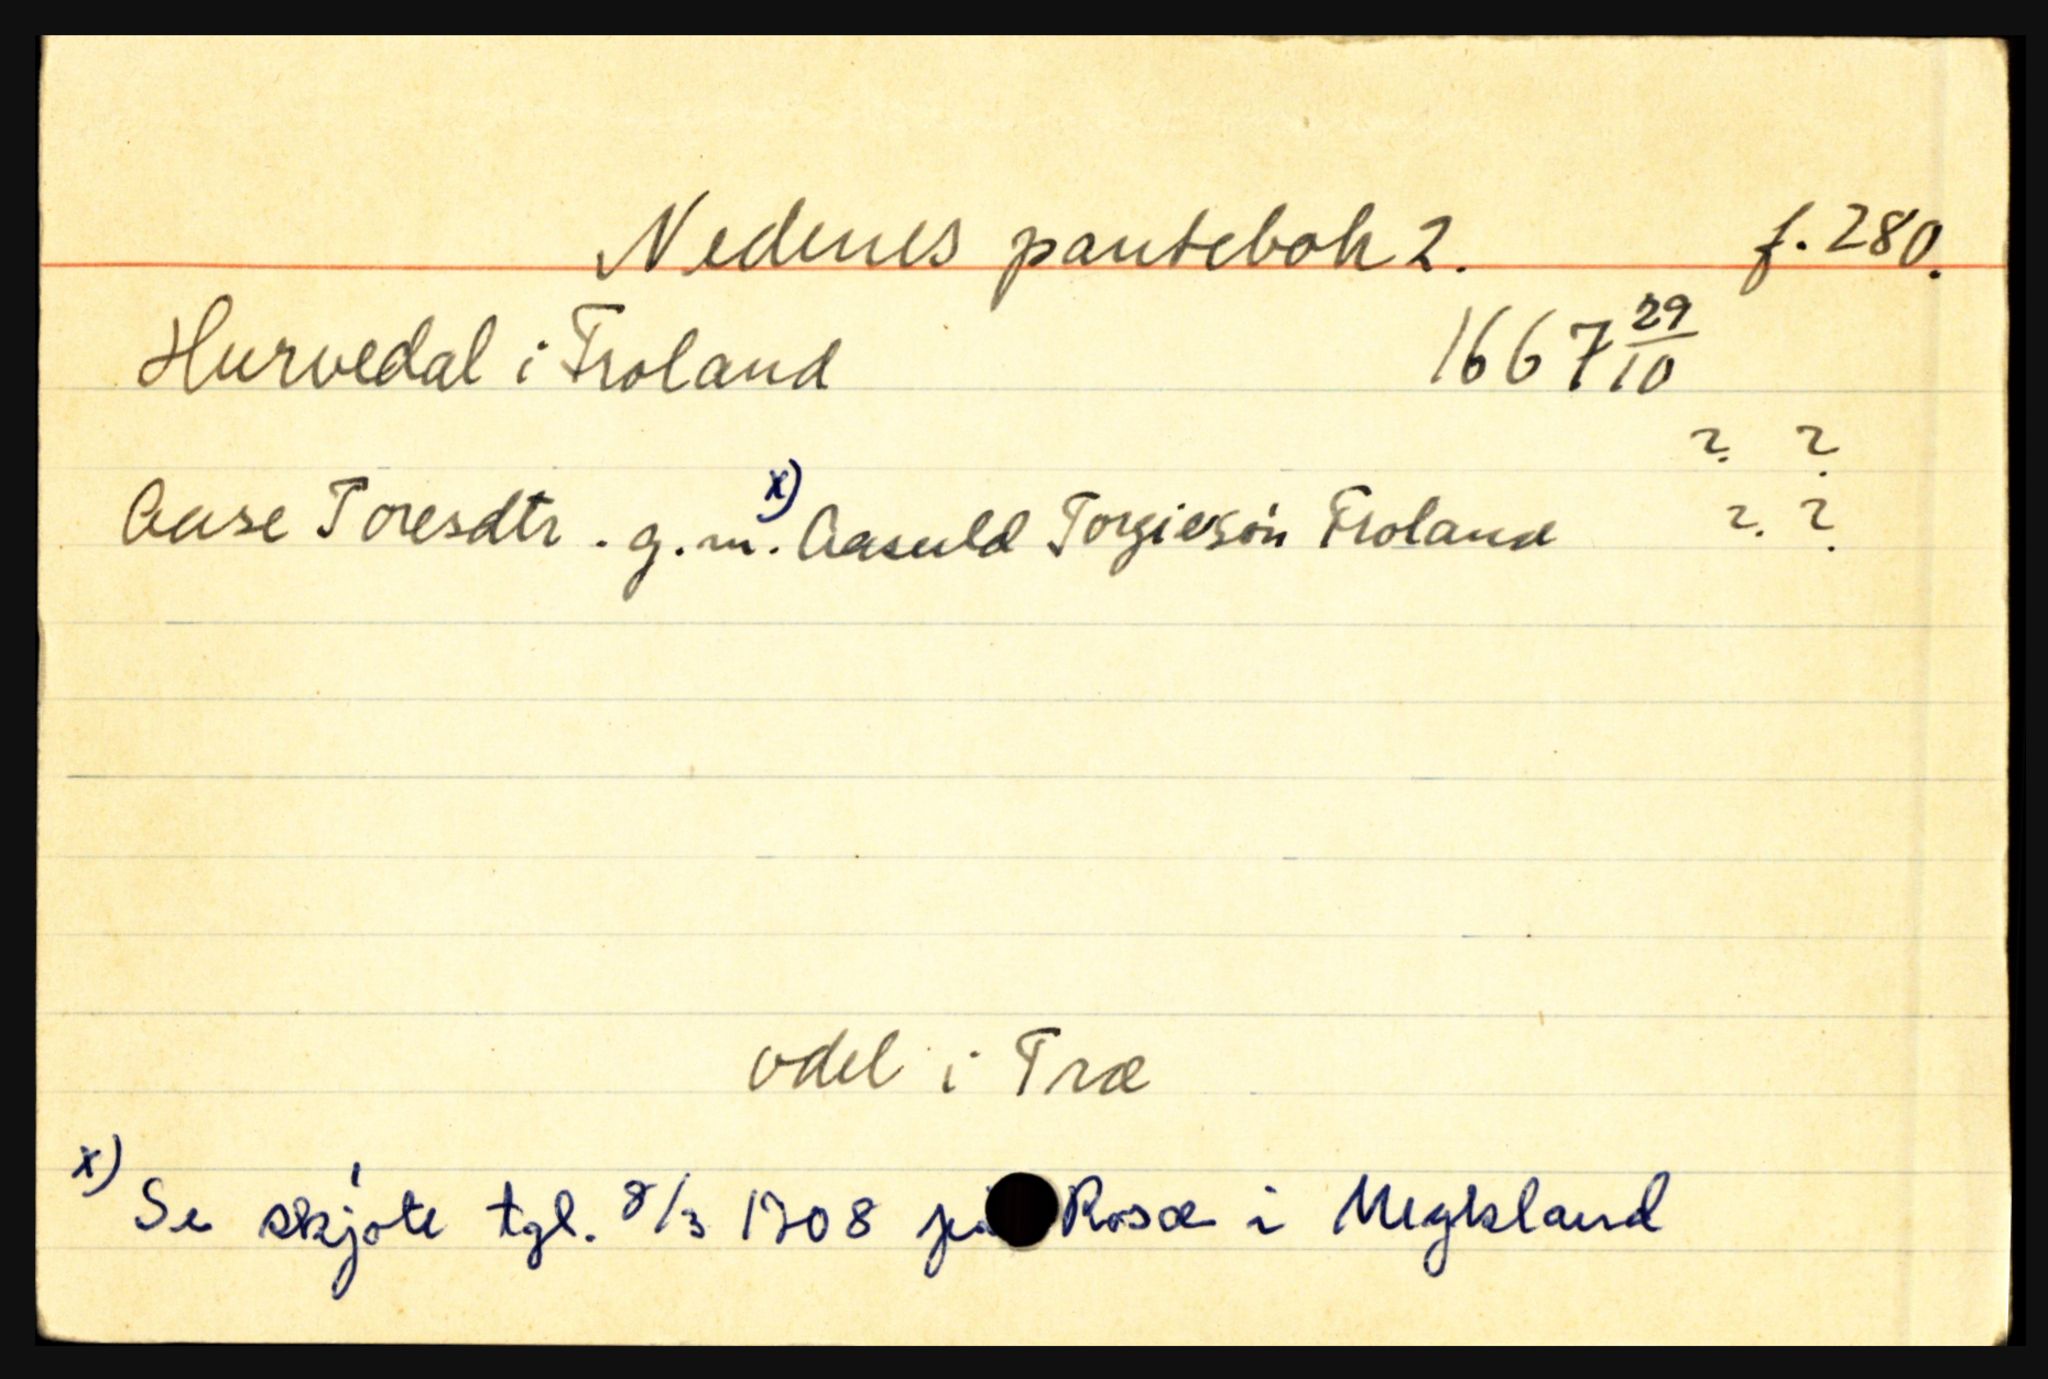 Nedenes pantebok 2. f. 280.
Hurvedal i Froland 1667 29/10
? ?
Aase Toresdtr. g.m. x) Aasuld Torgiersøn Froland ? ?
odel i Træ
x) Se skjøte tgl. 8/3 1708 på Rosæ i Mykland